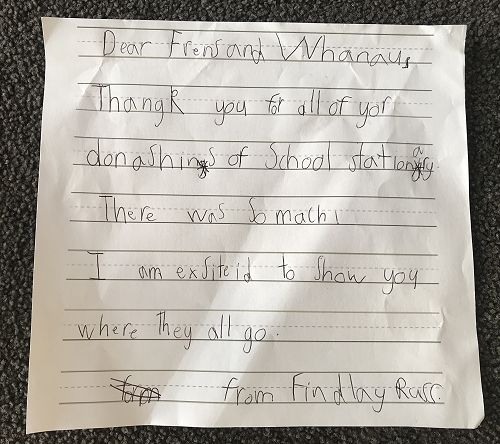 Dear Frens and Whanaus,
Thangk you for all of yor
donashins of School stationary.
There was so mach!
I am exsiteid to Show you
where they all go.
from Findlay Russ.